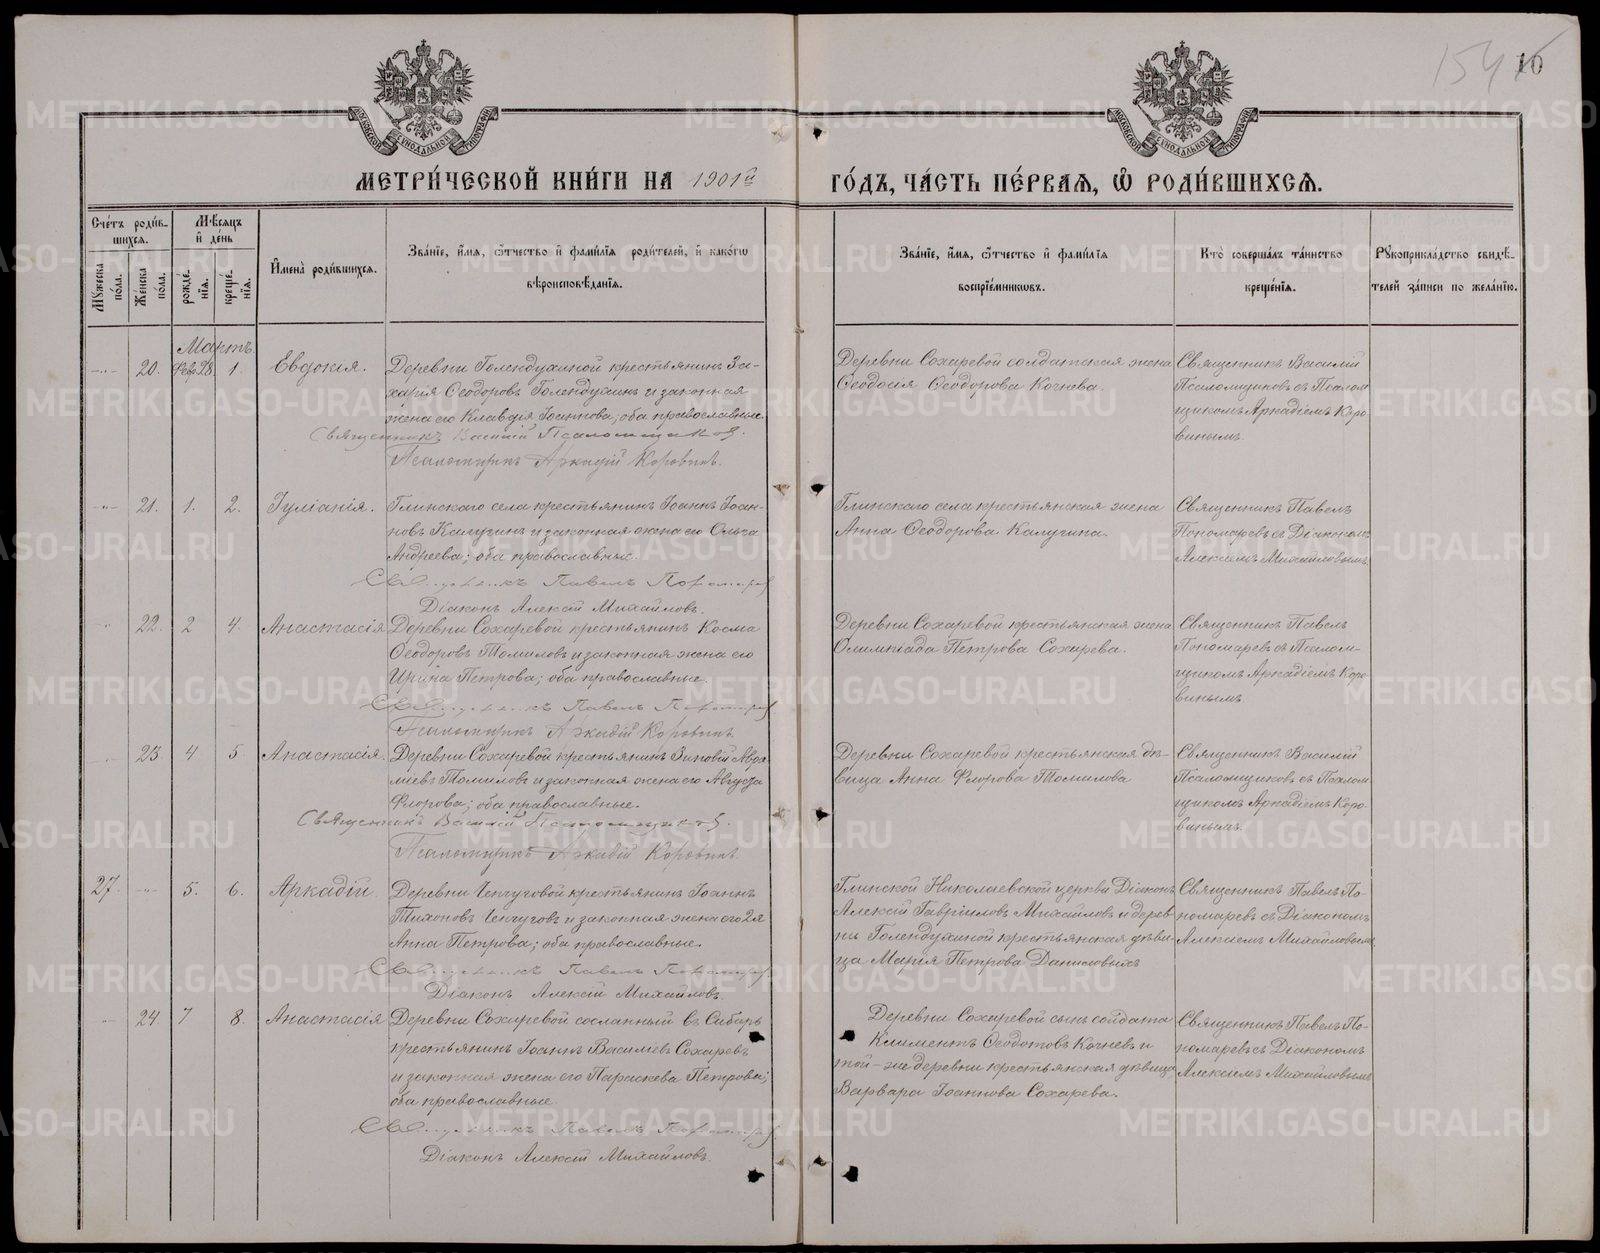 154
10
МЕТРИ́ЧЕСКОЙ КНИ́ГИ НА 1901й ГО́ДЪ, ЧА́СТЬ ПЕ́РВАЯ, Ѿ РОДИ́ВШИХСЯ.
Сче́тъ роди́в-
шихся.
Мѣ́сяцъ
и де́нь
Му́жеска по́ла.
Же́нска по́ла.
рожде́-
нія.
креще́-
нія.
И҆мена̀ роди́вшихся.
Зва́ніе, и҆́мя, ѻ҆́тчество и҆ фами́лія роди́телей, и҆ како́гѡ
вѣроисповѣ́данія.
Зва́ніе, и҆́мя, ѻ҆́тчество и҆ фами́лія
воспріе́мниковъ.
Кто̀ соверша́лъ та́инство
креще́нія.
Рꙋкоприкла́дство свидѣ́-
телей за́писи по жела́нію.
Мартъ
20. Февр. 28. 1. Евдокія.
Деревни Голендухиной крестьянинъ За-
харія Ѳеодоровъ Голендухинъ и законная
жена его Клавдія Іоаннова; оба православные.
Священникъ Василій Псаломщиковъ.
Псаломщикъ Аркадій Коровинъ.
Деревни Сохаревой солдатская жена
Ѳеодосія Ѳеодорова Кочнева.
Священникъ Василій
Псаломщиковъ съ Псалом-
щикомъ Аркадіемъ Коро-
винымъ.
21. 1. 2. Іуліанія.
Глинскаго села крестьянинъ Іоаннъ Іоан-
новъ Калугинъ и законная жена его Ольга
Андреева; оба православные.
Священникъ Павелъ Пономаревъ
Діаконъ Алексій Михайловъ.
Глинскаго села крестьянская жена
Анна Ѳеодорова Калугина.
Священникъ Павелъ
Пономаревъ съ Діакономъ
Алексіемъ Михайловымъ.
22. 2 4. Анастасія
Деревни Сохаревой крестьянинъ Косма
Ѳеодоровъ Томиловъ и законная жена его
Ирина Петрова; оба православные.
Священникъ Павелъ Пономаревъ
Псаломщикъ Аркадій Коровинъ
Деревни Сохаревой крестьянская жена
Олимпіада Петрова Сохарева.
Священникъ Павелъ
Пономаревъ съ Псалом-
щикомъ Аркадіемъ Коро-
винымъ
23 4 5 Анастасія.
Деревни Сохаревой крестьянинъ Зиновій Авра-
міевъ Томиловъ и законная жена его Августа
Флорова; оба православные.
Священникъ Василій Псаломщиковъ.
Псаломщикъ Аркадій Коровинъ.
Деревни Сохаревой крестьянская дѣ-
вица Анна Флорова Томилова
Священникъ Василій
Псаломщиковъ съ Псалом-
щикомъ Аркадіемъ Коро-
винымъ.
27. 5. 6. Аркадій.
Деревни Ченчуговой крестьянинъ Іоаннъ
Тихоновъ Ченчуговъ и законная жена его 2я
Анна Петрова; оба православные.
Священникъ Павелъ Пономаревъ
Діаконъ Алексій Михайловъ.
Глинской Николаевской церкви Діаконъ
Алексій Гавріиловъ Михайловъ и дерев-
ни Голендухиной крестьянская дѣви-
ца Марія Петрова Данисовыхъ
Священникъ Павелъ По-
номаревъ съ Діакономъ
Алексіемъ Михайловымъ
24. 7 8. Анастасія
Деревни Сохаревой сосланный въ Сибирь
крестьянинъ Іоаннъ Василіевъ Сохаревъ
и законная жена его Параскева Петрова;
оба православные.
Священникъ Павелъ Пономаревъ
Діаконъ Алексій Михайловъ.
Деревни Сохаревой сынъ солдата
Климентъ Ѳеодотовъ Кочневъ и
той-же деревни крестьянская дѣвица
Варвара Іоаннова Сохарева.
Священникъ Павелъ По-
номаревъ съ Діакономъ
Алексіемъ Михайловымъ
METRIKI.GASO-URAL.RU